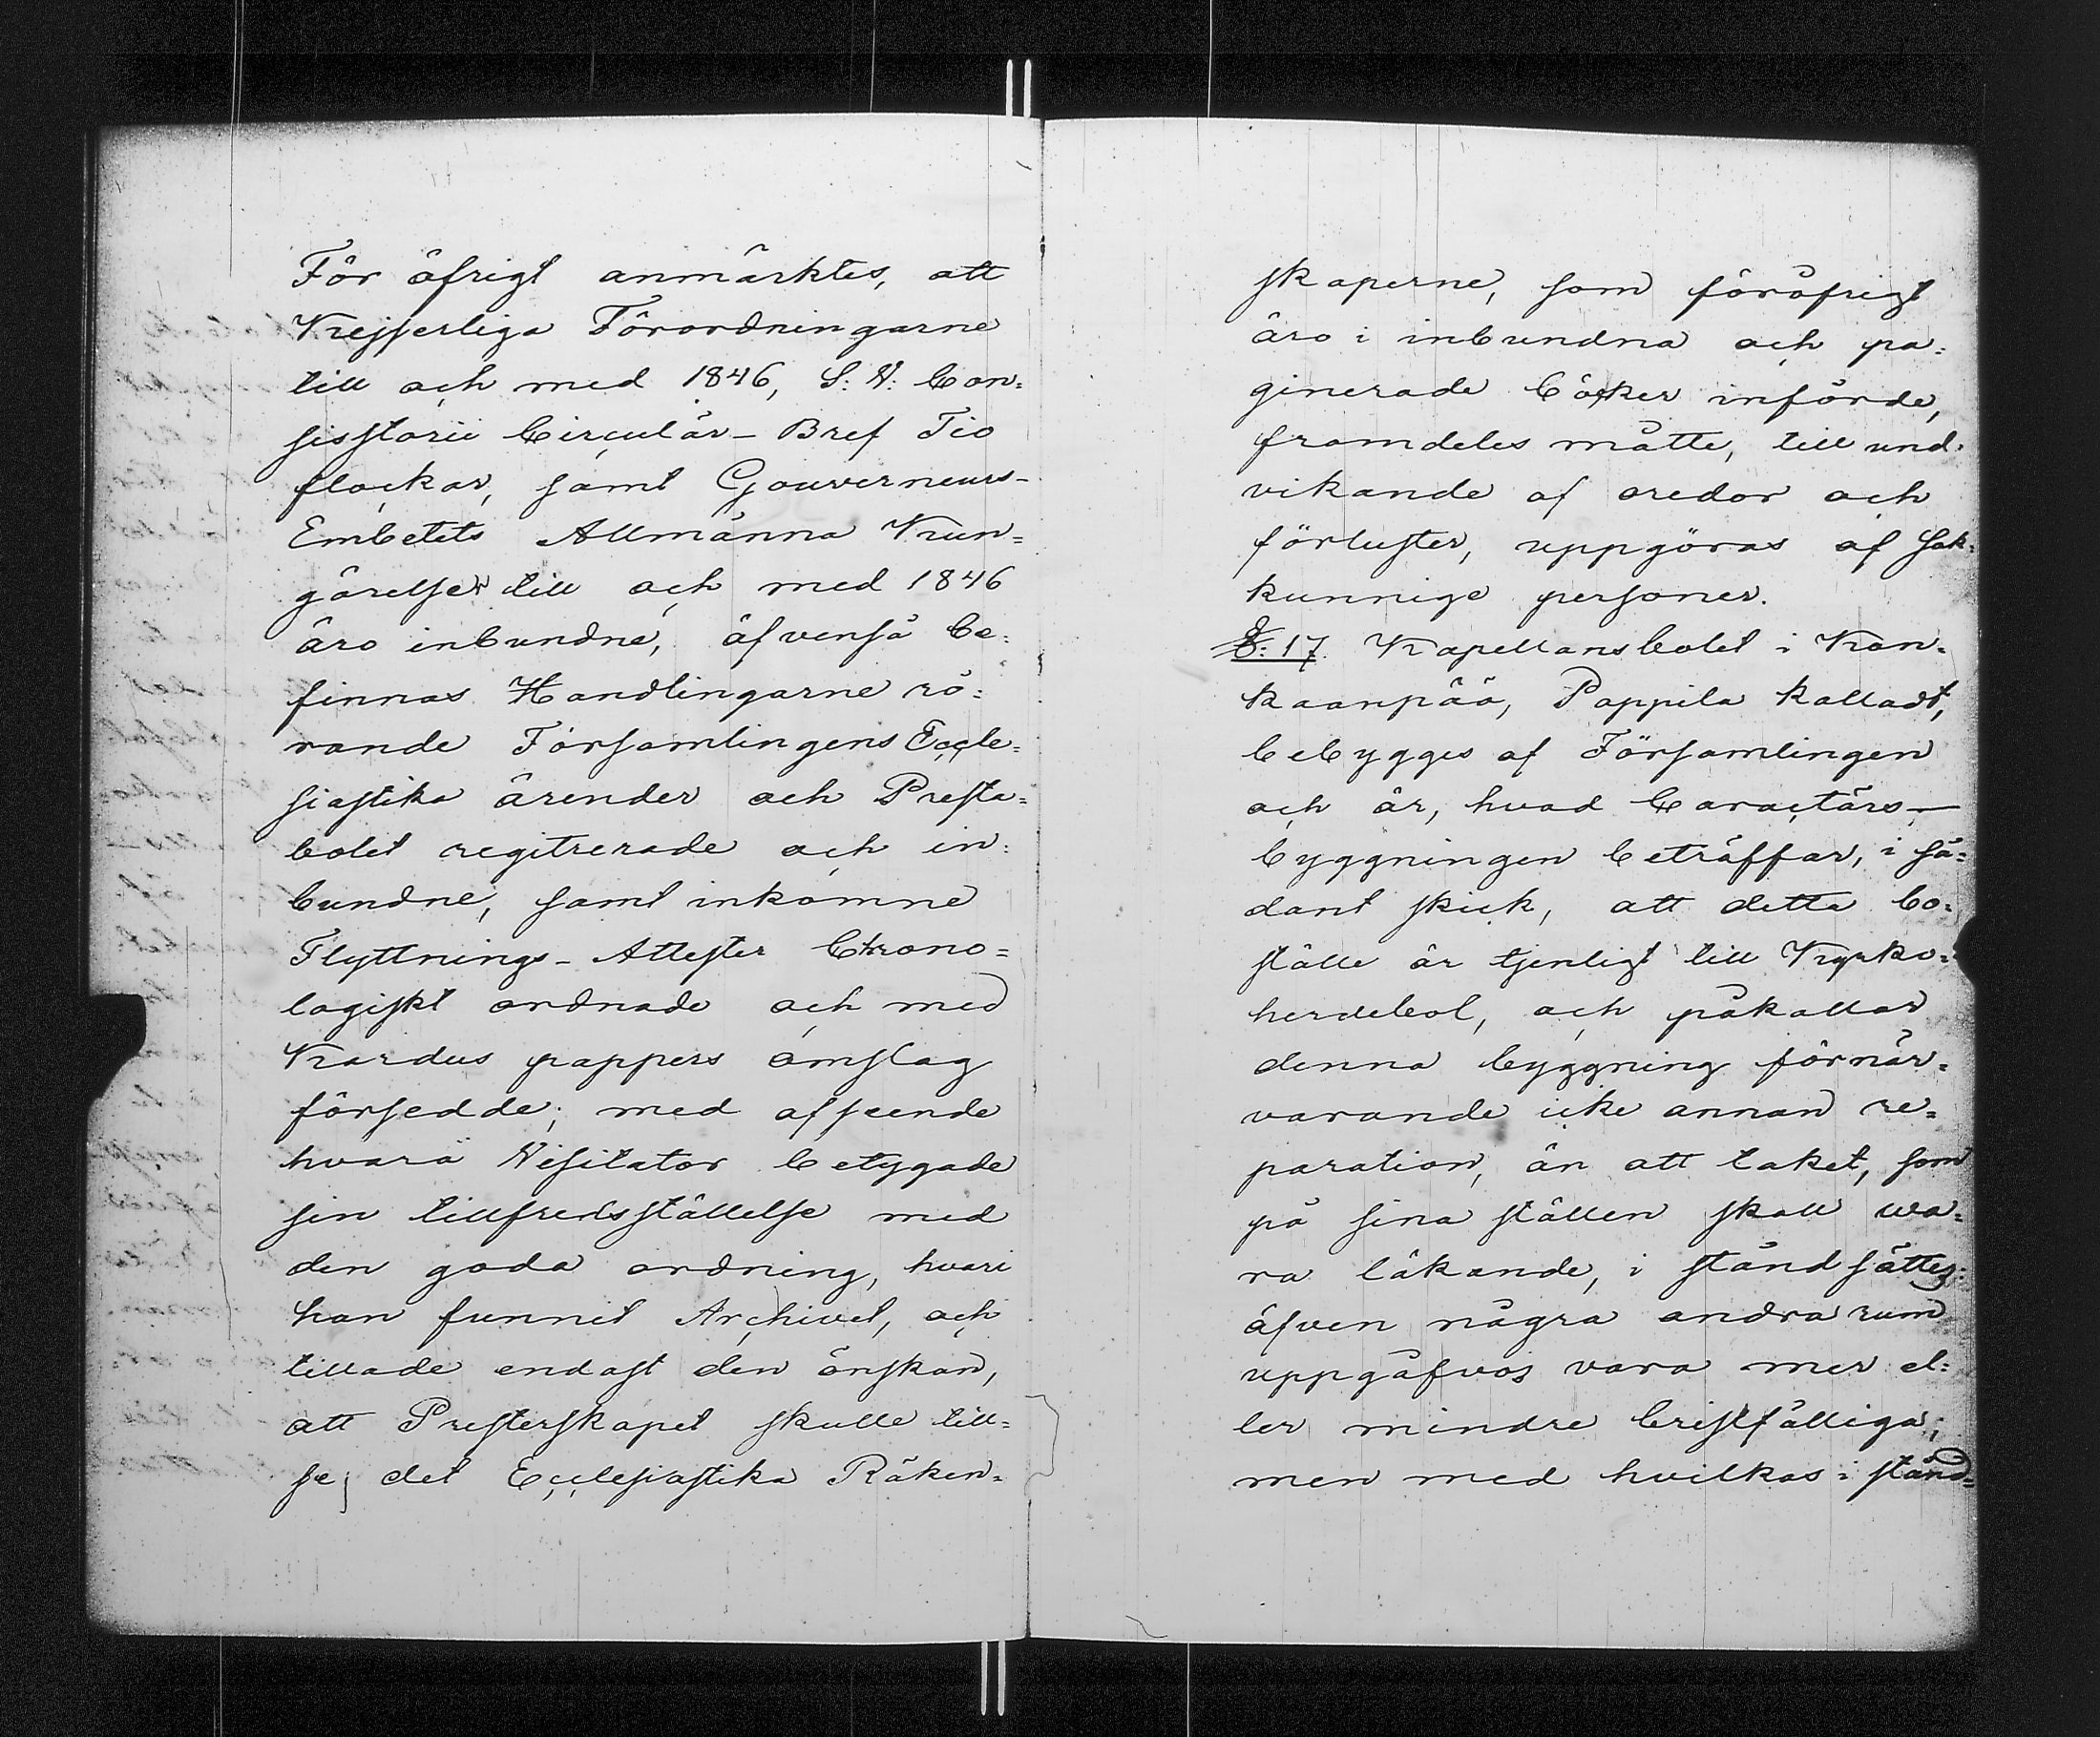 För öfrigt anmärktes, att
Kejserliga Förordningarne
till och med 1846, S: V: Con=
sisstorii Circulär-Bref Tio
flockar, samt Gouverneurs-
Embetets Allmänna Kun=
görelser till och med 1846
äro inbundne, äfvenså be=
finnas Handlingarne rö=
rande Församlingens Eccle=
siastika ärender och Presta=
bolet regitrerade och in=
bundne, samt inkomne
Flyttnings-Attester Chrono=
logiskt ordnade och med
Kardus pappers omslag
försedde; med afseende
hvarå Visitator betygade
sin tillfredsställelse med
den goda ordning, hvari
han funnit Archivet, och
tillade endast den önskan,
att Presterskapet skulle till=
se; det Ecclesiastika Räken=
skaperne, som föröfrigt
äro i inbundna och pa=
ginerade böcker införde,
framdeles måtte, till und=
vikande af oredor och
förluster, uppgöras af sak=
kunnige personer.
§: 17. Kapellansbolet i Kan=
kaanpää, Pappila kalladt,
bebygges af Församlingen
och är, hvad Caractärs-
byggningen beträffar, i så=
dant skick, att detta bo=
ställe är tjenligt till Kyrko=
herdebol, och påkallar
denna byggning förnär=
varande icke annan re=
paration, än att taket, som
på sina ställen skall wa=
ra läkande, i ståndsättes:
äfven några andra rum
uppgåfvos vara mer el=
ler mindre bristfälliga;
men med hvilkas i stånd=